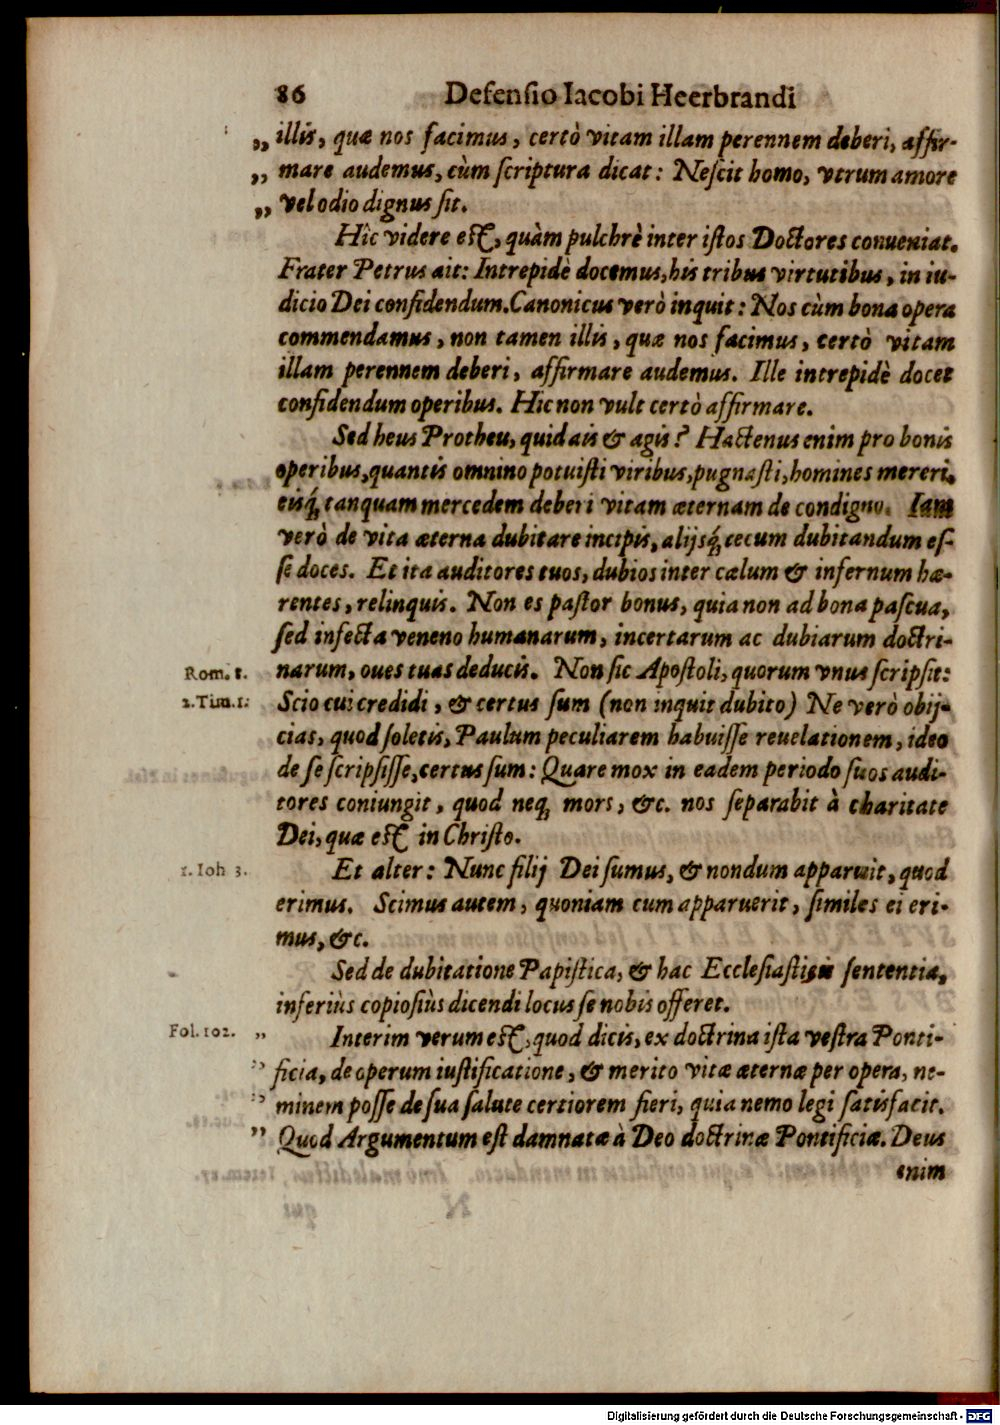 86 Defensio Iacobi Heerbrandi
„ illis, quæ nos facimus, certò vitam illam perennem deberi, affir-
„ mare audemus, cùm scriptura dicat: Nescit homo, vtrum amore
„ vel odio dignus sit.
Hîc videre est, quàm pulchrè inter istos Doctores conueniat.
Frater Petrus ait: Intrepidè docemus, his tribus virtutibus, in iu-
dicio Dei confidendum. Canonicus verò inquit: Nos cùm bona opera
commendamus, non tamen illis, quæ nos facimus, certò vitam
illam perennem deberi, affirmare audemus. Ille intrepidè docet
confidendum operibus. Hic non vult certò affirmare.
Sed heus Protheu, quid ais & agis? Hactenus enim pro bonis
operibus, quantis omnino potuisti viribus, pugnasti, homines mereri,
eisq́; tanquam mercedem deberi vitam æternam de condigno. Iam
verò de vita æterna dubitare incipis, alijsq́; tecum dubitandum es-
se doces. Et ita auditores tuos, dubios inter cælum & infernum hæ-
rentes, relinquis. Non es pastor bonus, quia non ad bona pascua,
sed infecta veneno humanarum, incertarum ac dubiarum doctri-
Rom. 8. narum, oues tuas deducis. Non sic Apostoli, quorum vnus scripsit:
2. Tim. 1. Scio cui credidi, & certus sum (non inquit dubito) Ne verò obij-
cias, quod soletis, Paulum peculiarem habuisse reuelationem, ideo
de se scripsisse, certus sum: Quare mox in eadem periodo suos audi-
tores coniungit, quod neq; mors, &c. nos separabit à charitate
Dei, quæ est in Christo.
1. Ioh 3. Et alter: Nunc filij Dei sumus, & nondum apparuit, quod
erimus. Scimus autem, quoniam cum apparuerit, similes ei eri-
mus, &c.
Sed de dubitatione Papistica, & hac Ecclesiastis sententia,
inferiùs copiosiùs dicendi locus se nobis offeret.
Fol. 102. „ Interim verum est, quod dicis, ex doctrina ista vestra Ponti-
„ ficia, de operum iustificatione, & merito vitæ æternæ per opera, ne-
„ minem posse de sua salute certiorem fieri, quia nemo legi satisfacit.
„ Quod Argumentum est damnatæ à Deo doctrinæ Pontificiæ. Deus
enim
Digitalisierung gefördert durch die Deutsche Forschungsgemeinschaft - DFG